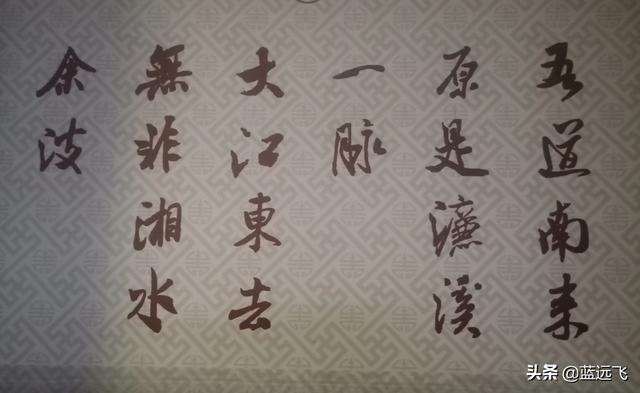 吾道南来
原是濂溪
一脉
大江東去
無非湘水
余波
头条 @蓝远飞